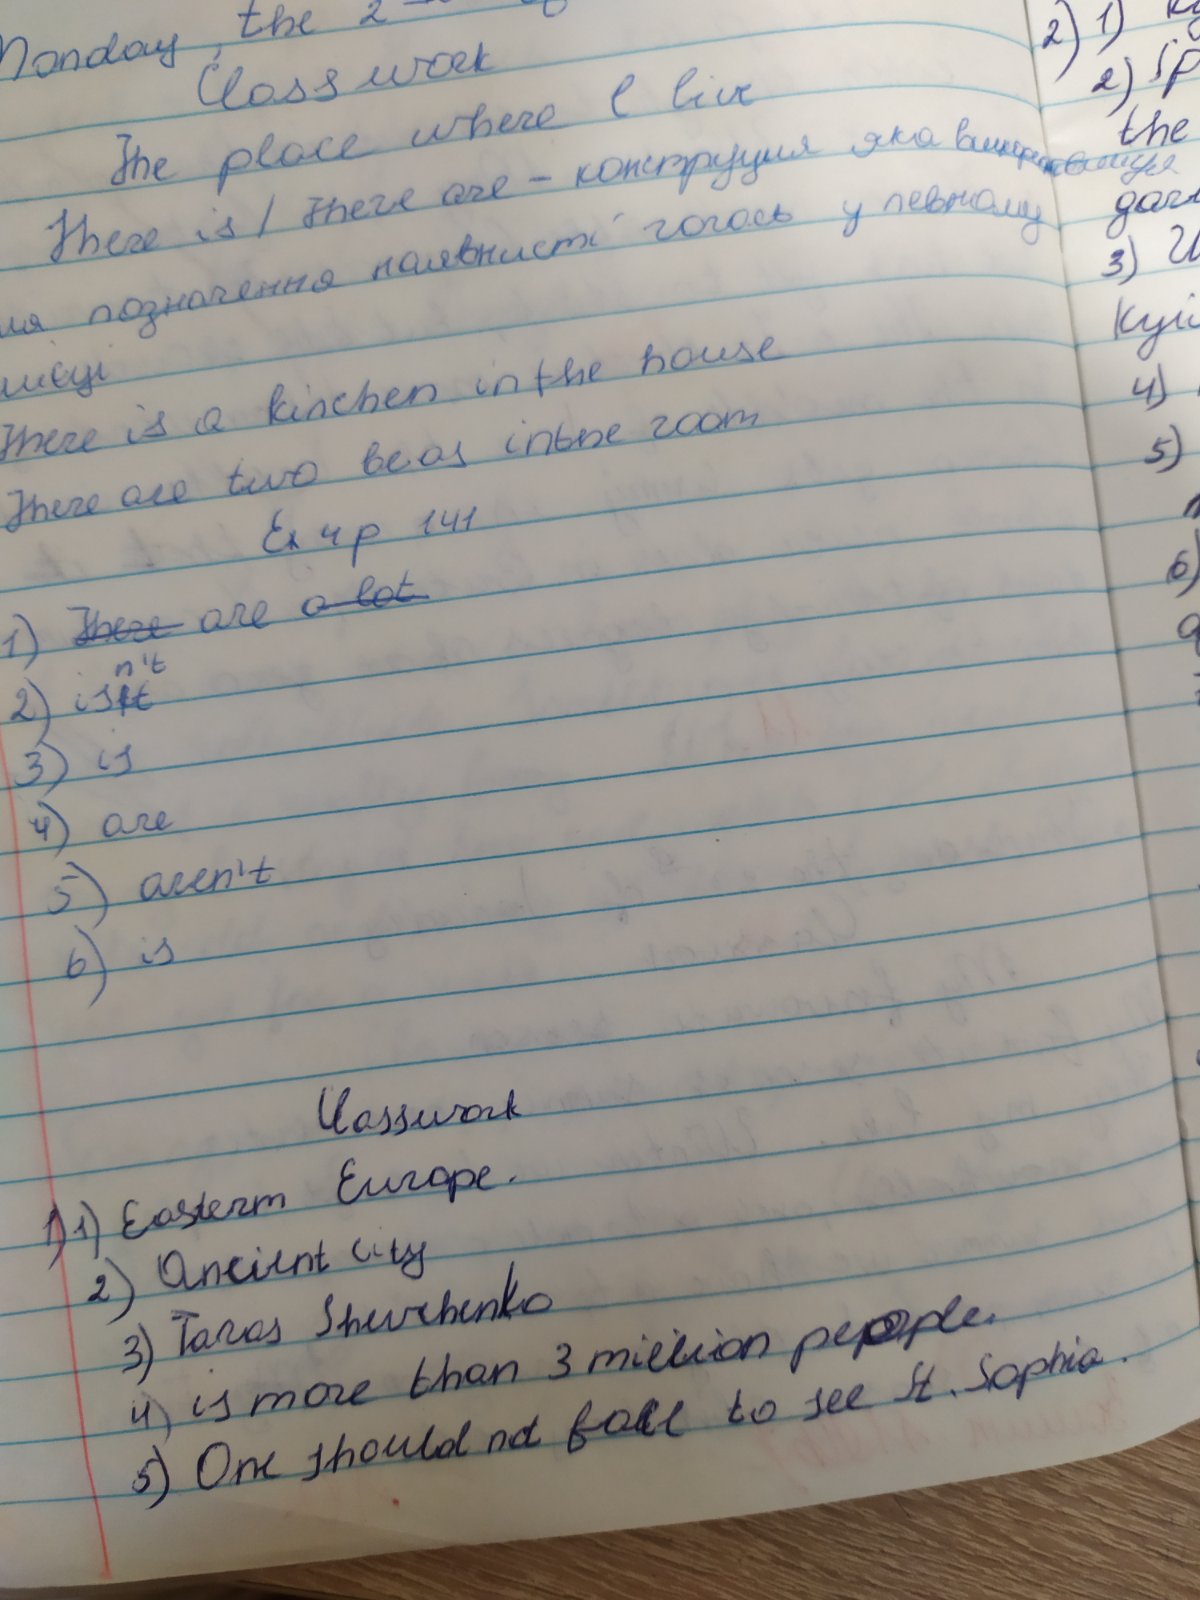 Monday, the 2
Classwork
The place where I live
There is / There are - конструкция яка використовується
ля позначення наявности чогось у певному
місці
There is a kinchen in the house
There are two beds in the room
Ex 4 p 141
1) There are a lot
2) isn't
3) is
4) are
5) aren't
6) is
Classwork
1) 1) Eastern Europe.
2) Ancient city
3) Taras Shevchenko
4) is more than 3 million people.
5) One should not fail to see St. Sophia.
2) 1)
2) Sp
the
3)
Киї
4)
5)
6)